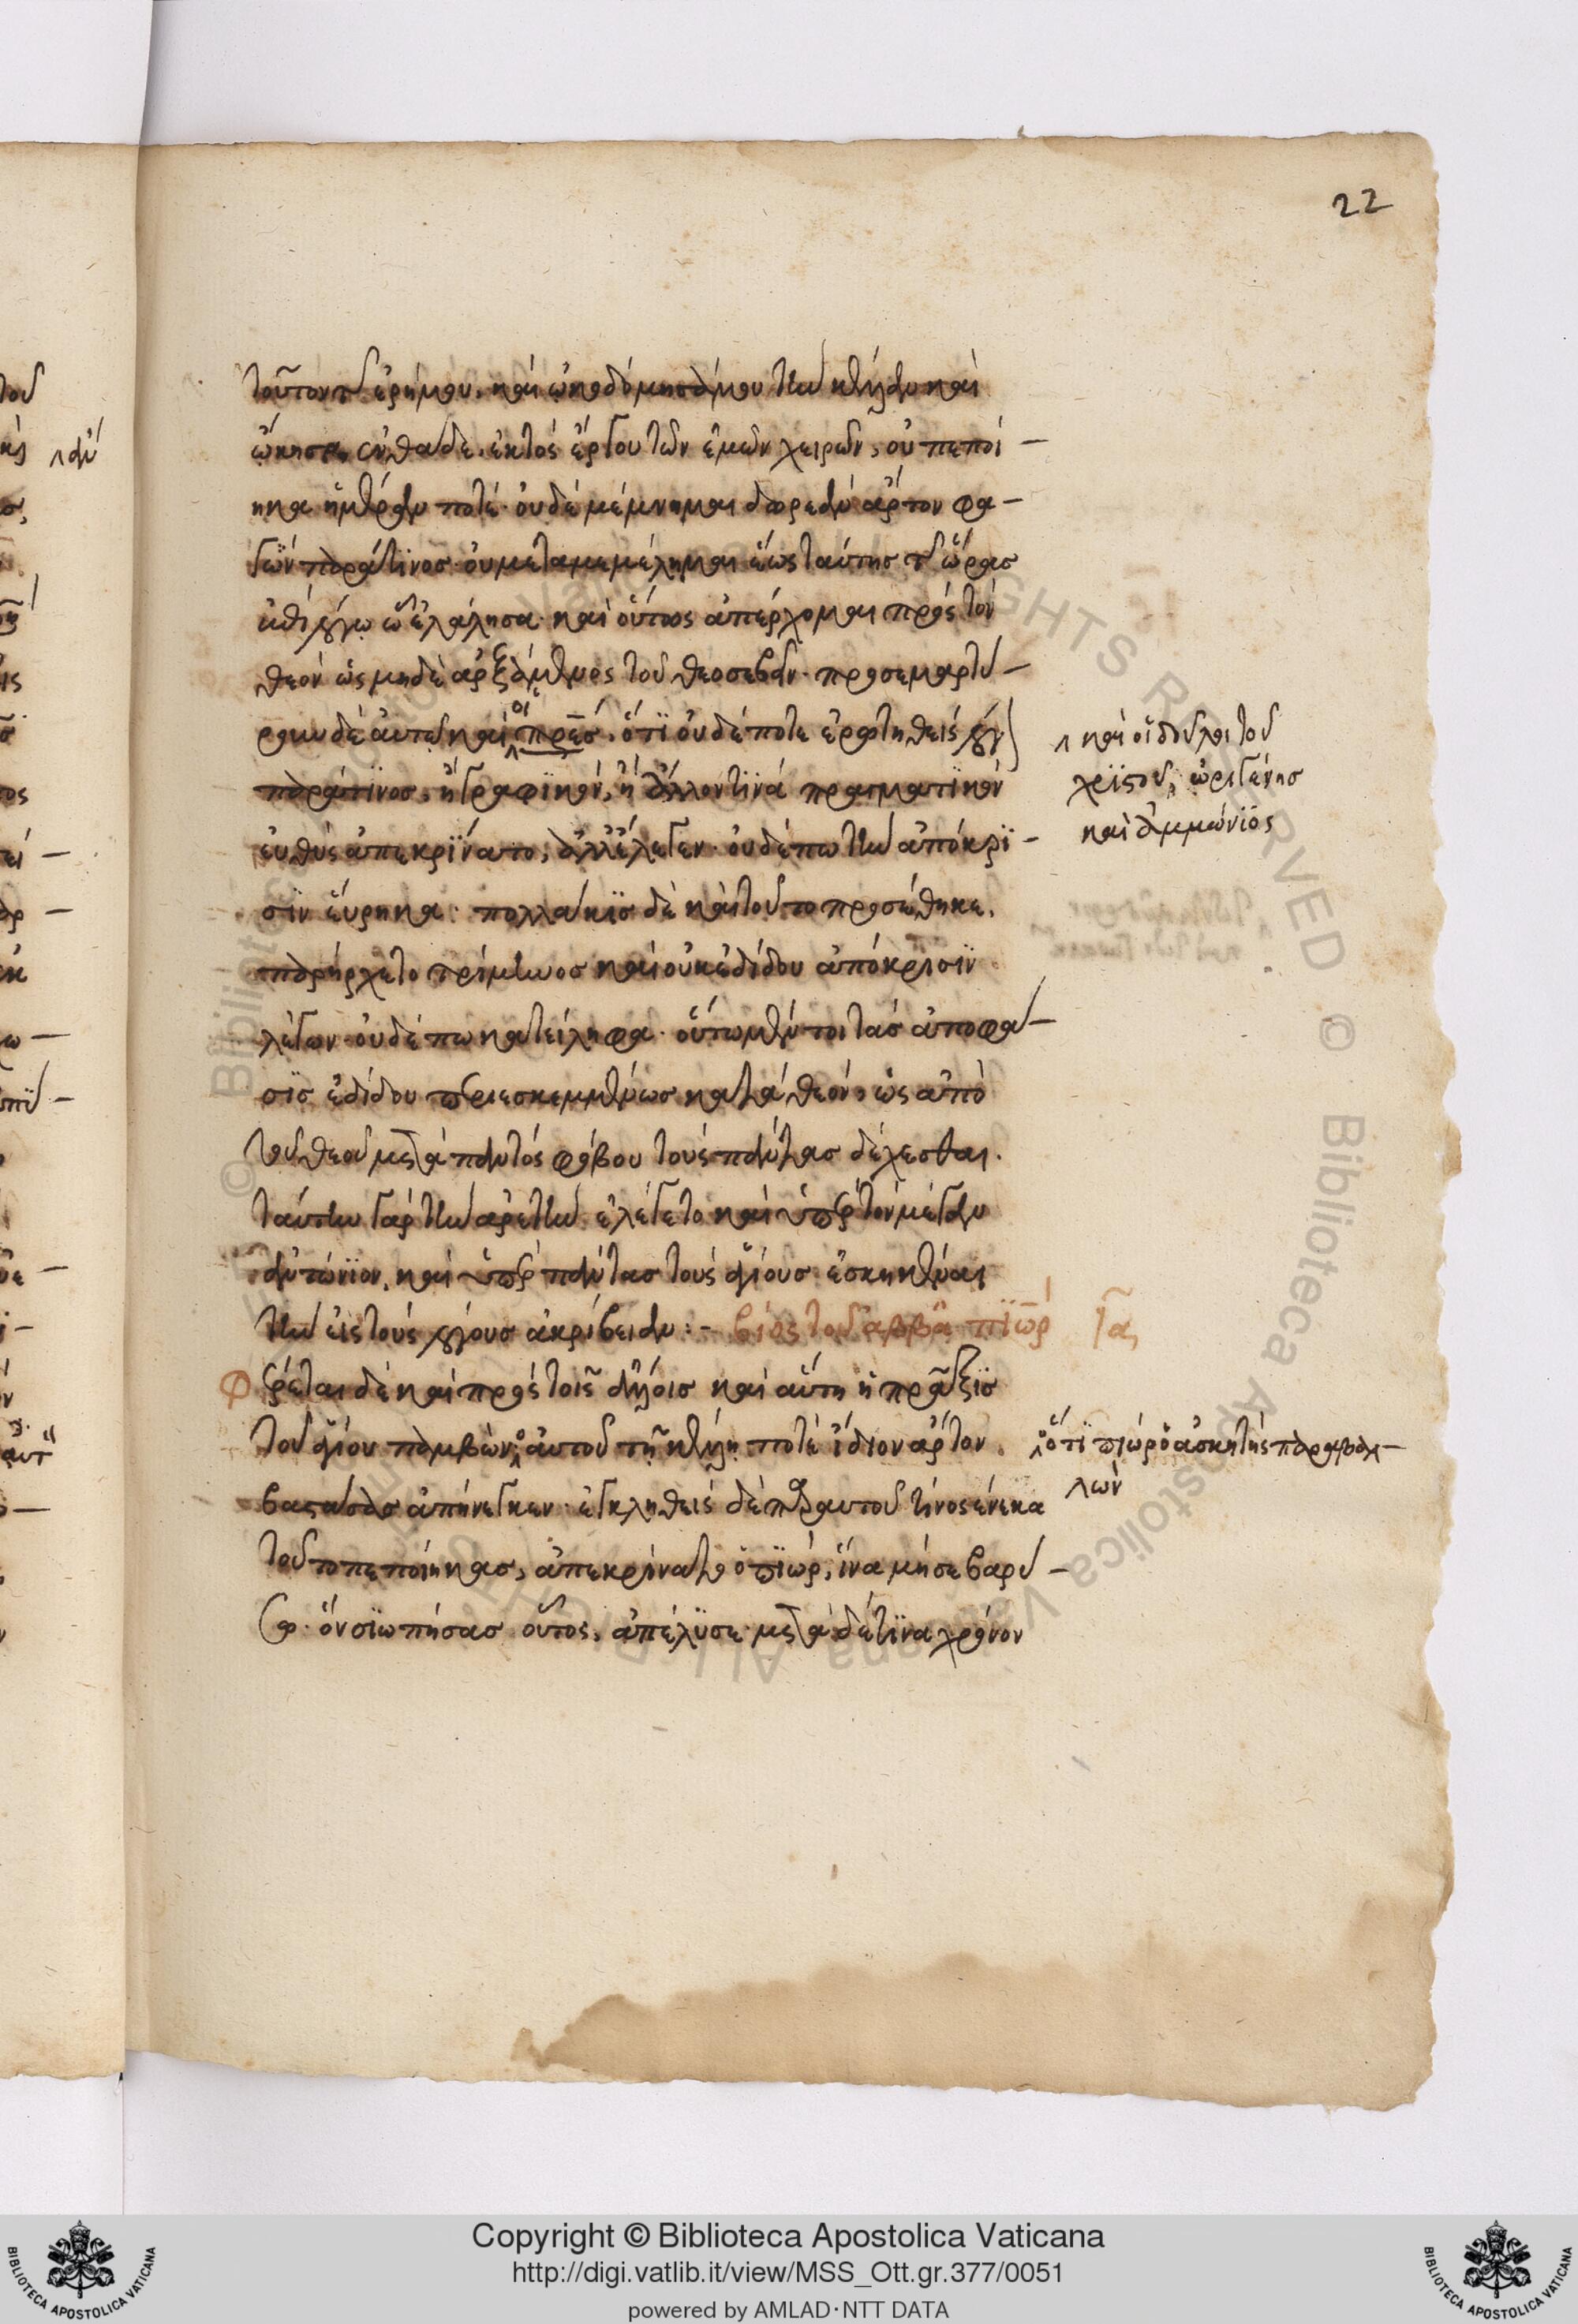 22
τοῦτον τῆς ἐρήμου. καὶ ὠκοδόμησά μου τὴν κέλλαν καὶ
ᾤκησα ἐνθάδε. ἐκτὸς ἔργου τῶν ἐμῶν χειρῶν, οὐ πεποί-
ηκα ἡμέραν ποτέ. οὐδὲ μέμνημαι δωρεὰν ἄρτον φα-
γὼν παρά τινος. οὐ μεταμεμέλημαι ἕως ταύτης τῆς ὥρας
ἐπὶ λόγω ὧ ἐλάλησα. καὶ οὕτως ἀπέρχομαι πρὸς τὸν
θεὸν ὡς μηδὲ ἀρξάμενος τοῦ θεοσεβεῖν. προσεμαρτύ-
ρουν δὲ αὐτῶ καὶ οἱ πρ̅ες. ὅτι οὐδέποτε ἐρωτηθεὶς λόγον
παρά τινος, ἢ γραφικὸν, ἢ ἄλλον τινὰ πραγματικὸν
εὐθὺς ἀπεκρίνατο, ἀλλ' ἔλεγεν. οὐδέπω τὴν ἀπόκρι-
σιν εὕρηκα. πολλάκις δὲ καὶ τοῦτο προσέθηκε.
παρήρχετο τρίμηνος καὶ οὐκ ἐδίδου ἀπόκρισιν
λέγων οὐδέπω κατείληφα. οὕτω μέντοι τὰς ἀποφά-
σις ἐδίδου περιεσκεμμένως κατὰ θεὸν, ὡς ἀπὸ
τοῦ θεοῦ μετὰ παντὸς φόβου τοὺς πάντας δέχεσθαι.
ταύτην γὰρ τὴν ἀρετὴν ἐλέγετο καὶ ὑπὲρ τὸν μέγαν
ἀντώνιον, καὶ ὑπὲρ πάντας τοὺς ἁγίους ἐσκηκέναι
τὴν εἰς τοὺς λόγους ἀκρίβειαν:- βίος τοῦ ἀββᾶ πιώρ ια
Φέρεται δὲ καὶ πρὸς τοῖς ἄλλοις καὶ αὕτη ἡ πρᾶξις
τοῦ ἁγίου παμβὼ αὐτοῦ τῆ κέλλη ποτὲ ἴδιον ἄρτον
βαστάσας ἀπήνεγκεν. ἐγκληθεὶς δὲ παρ' αὐτοῦ τίνος ἕνεκα
τοῦτο πεποίηκας, ἀπεκρίνατο ὁ πιώρ, ἵνα μή σε βαρύ-
σω. ὃν σιωπήσας οὗτος, ἀπέλυσε. μετὰ δέ τινα χρόνον
καὶ οἱ δοῦλοι τοῦ
χριστοῦ, ὠριγένης
καὶ ἀμμώνιος
ὅτι πιὼρ ὁ ἀσκητὴς παραβα-
λὼν
Copyright © Biblioteca Apostolica Vaticana
http://digi.vatlib.it/view/MSS_Ott.gr.377/0051
powered by AMLAD·NTT DATA